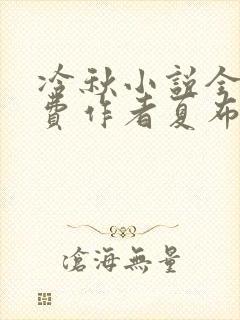 冷秋小說全
費作者夏布
滄海無量